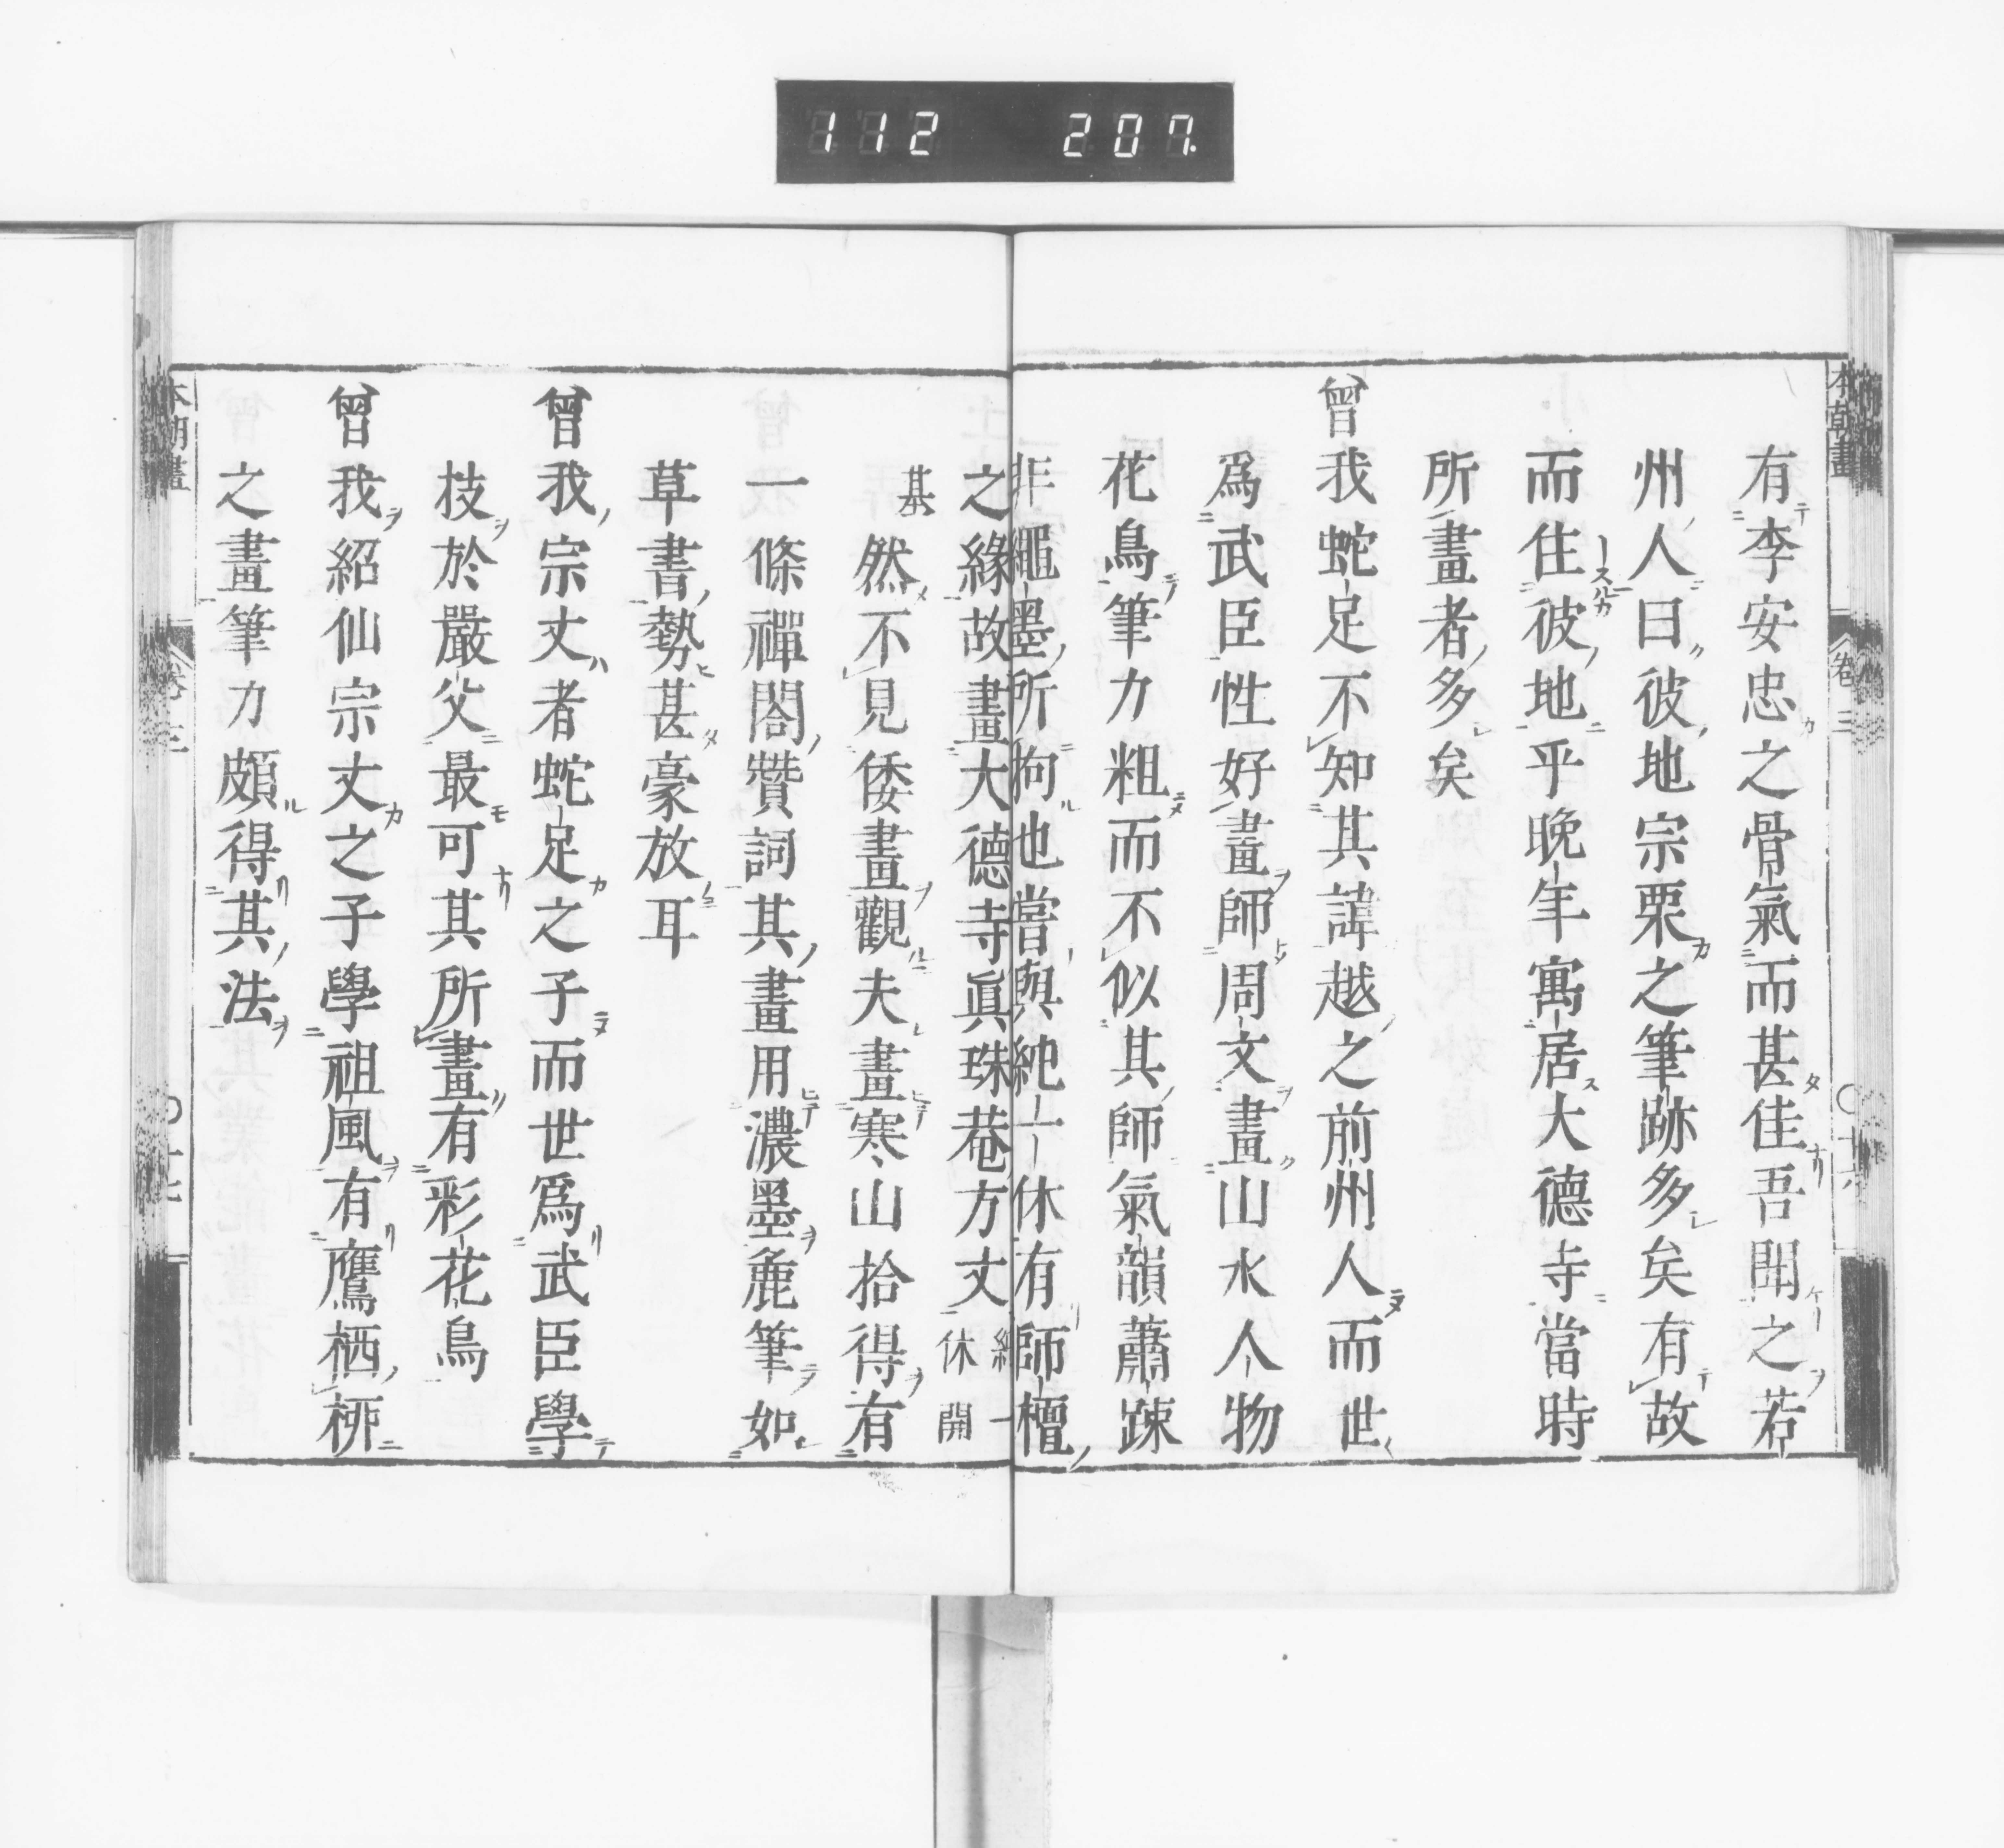 112 207.
本朝畫
卷三
有李安忠之骨氣而甚佳吾聞之若
州人曰彼地宗栗之筆跡多矣有故
而住彼地乎晩年寓居大德寺當時
所畫者多矣
曾我蛇足不知其諱越之前州人而世
爲武臣性好畫師周文畫山水人物
花鳥筆力粗而不似其師氣韻蕭踈
非繩墨所拘也嘗與純一休有師檀
之緣故畫大德寺眞珠菴方丈一休開
基然不見倭畫觀夫畫寒山拾得有
一條禪閤賛詞其畫用濃墨麁筆如
草書勢甚豪放耳
曾我宗丈者蛇足之子而世爲武臣學
枝於嚴父最可其所畫有彩花鳥
曾我紹仙宗丈之子學祖風有鷹栖栁
之畫筆力頗得其法
本朝畫
卷三